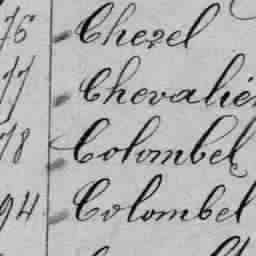 76 Chezel
77 Chevalier
78 Colombel
94 Colombel